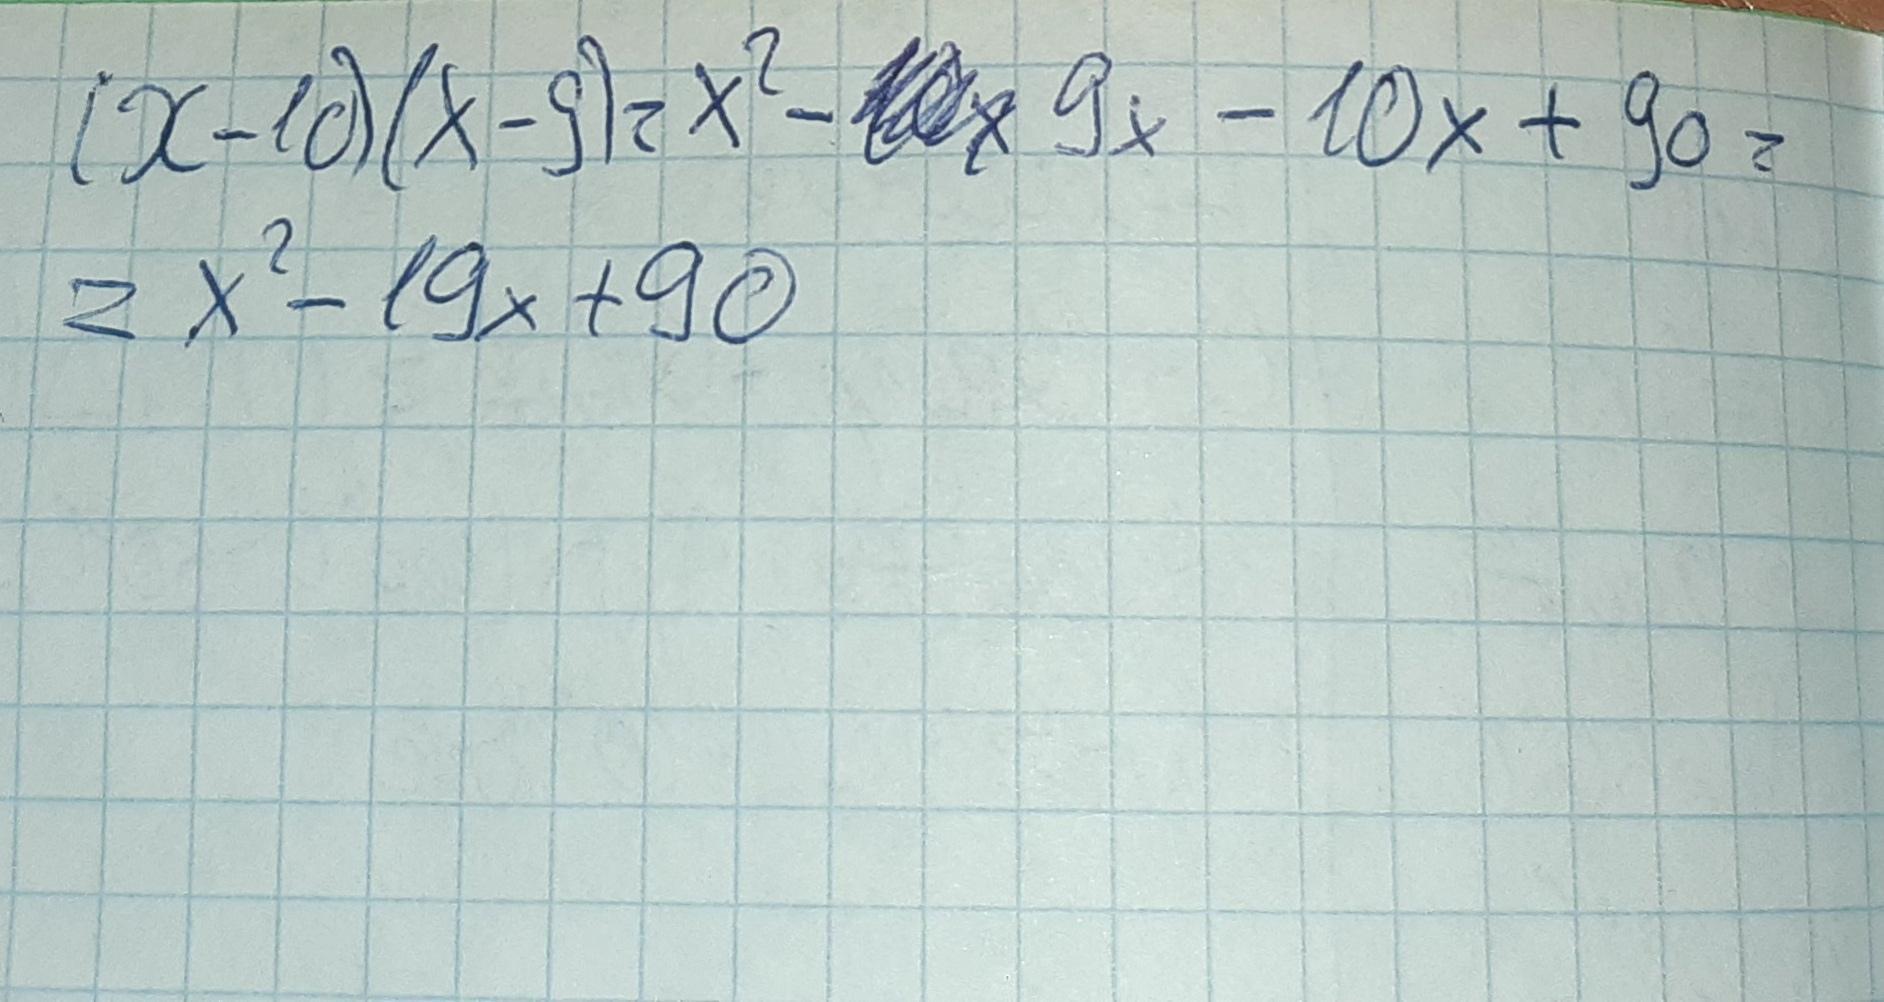 (x-10)(x-9)=x²-9x-10x+90=
=x²-19x+90